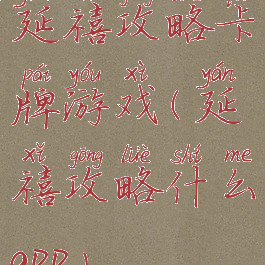 延禧攻略卡
pái yóu xì yán
牌游戏(延
xǐ gōng lüè shí me
禧攻略什么
app)